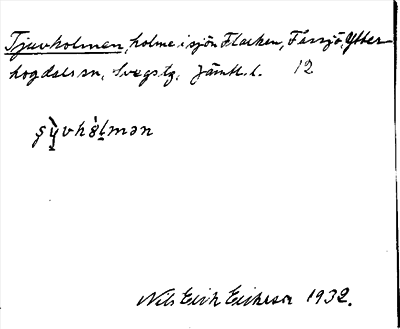 Tjuvholmen, holme i sjön Flarken, Fåssjö, Ytter-
hogdals sn, Svegs tg, Jämtl. l. 12
Nils Erik Eriksson 1932.